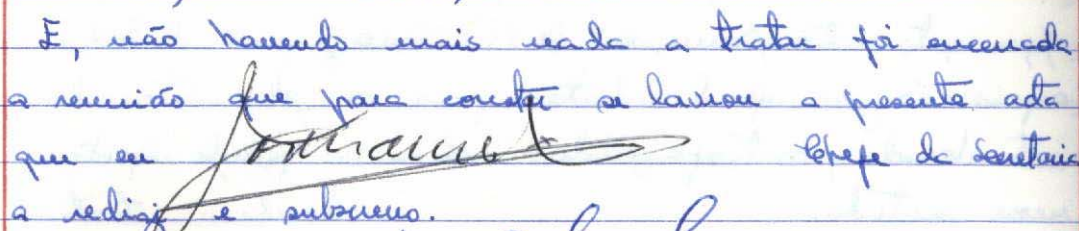 E, não havendo mais nada a tratar foi encerrada
a reunião que para constar se lavrou a presente acta
que eu Chefe da Secretaria
a redigi e subscrevo.